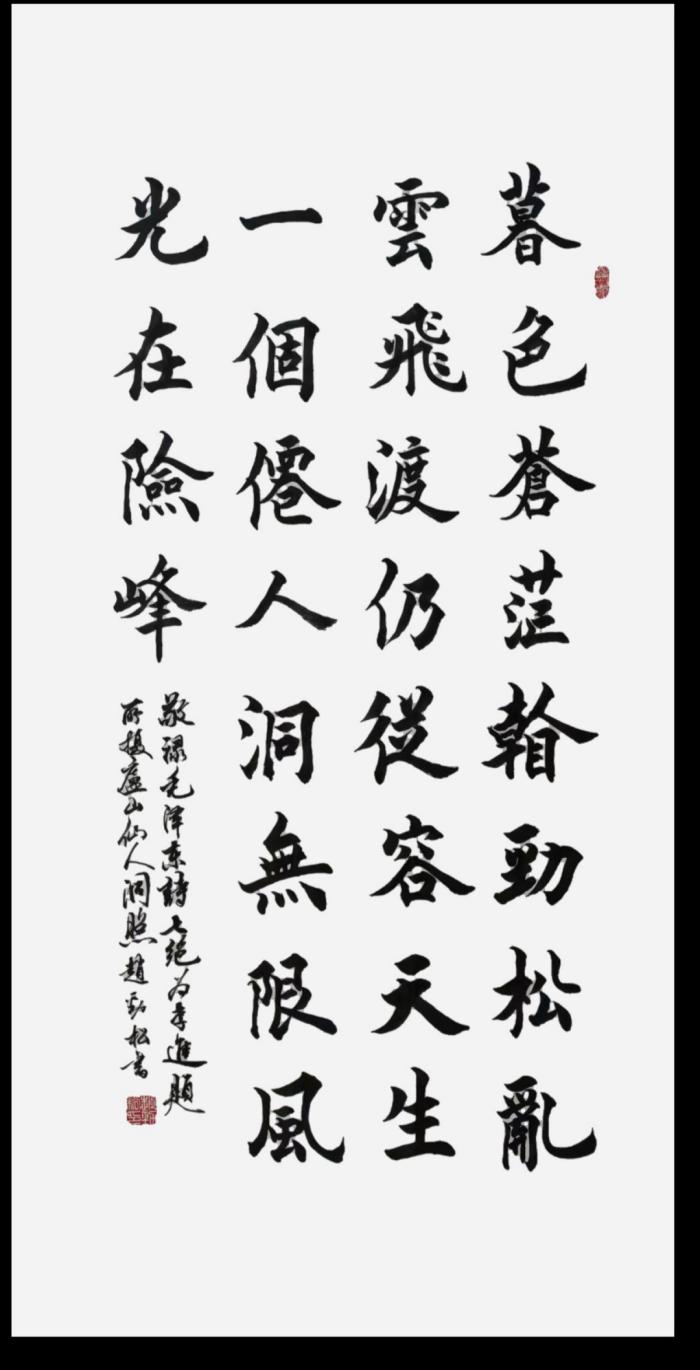 暮色蒼茫翰勁松亂
雲飛渡仍從容天生
一個僊人洞無限風
光在險峰
敬録毛澤東詩七绝为李進題
所攝廬山仙人洞照趙勁松書